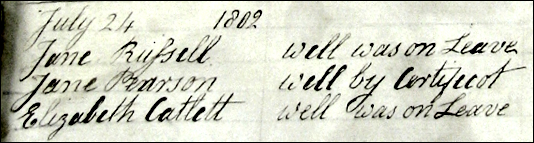 July 24 1802
Jane Russell well was on Leave
Jane Pearson well by Certificot
Elizabeth Catlett well was on Leave